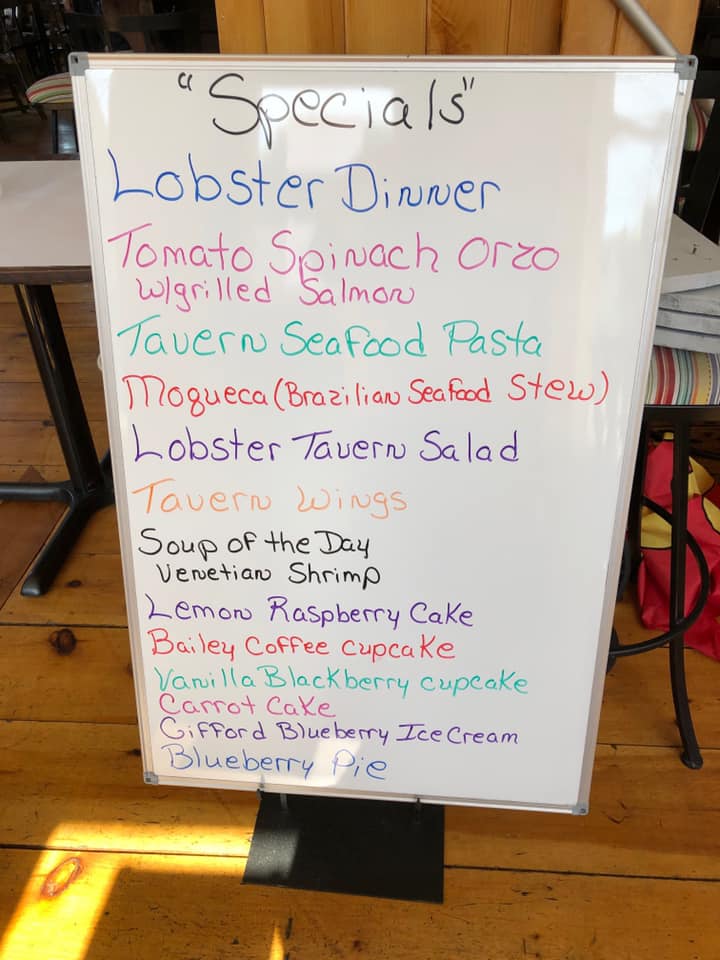 "Specials"
Lobster Dinner
Tomato Spinach Orzo
w/grilled Salmon
Tavern Seafood Pasta
Moqueca (Brazilian Seafood Stew)
Lobster Tavern Salad
Tavern Wings
Soup of the Day
Venetian Shrimp
Lemon Raspberry Cake
Bailey Coffee Cupcake
Vanilla Blackberry cupcake
Carrot Cake
Gifford Blueberry Ice Cream
Blueberry Pie